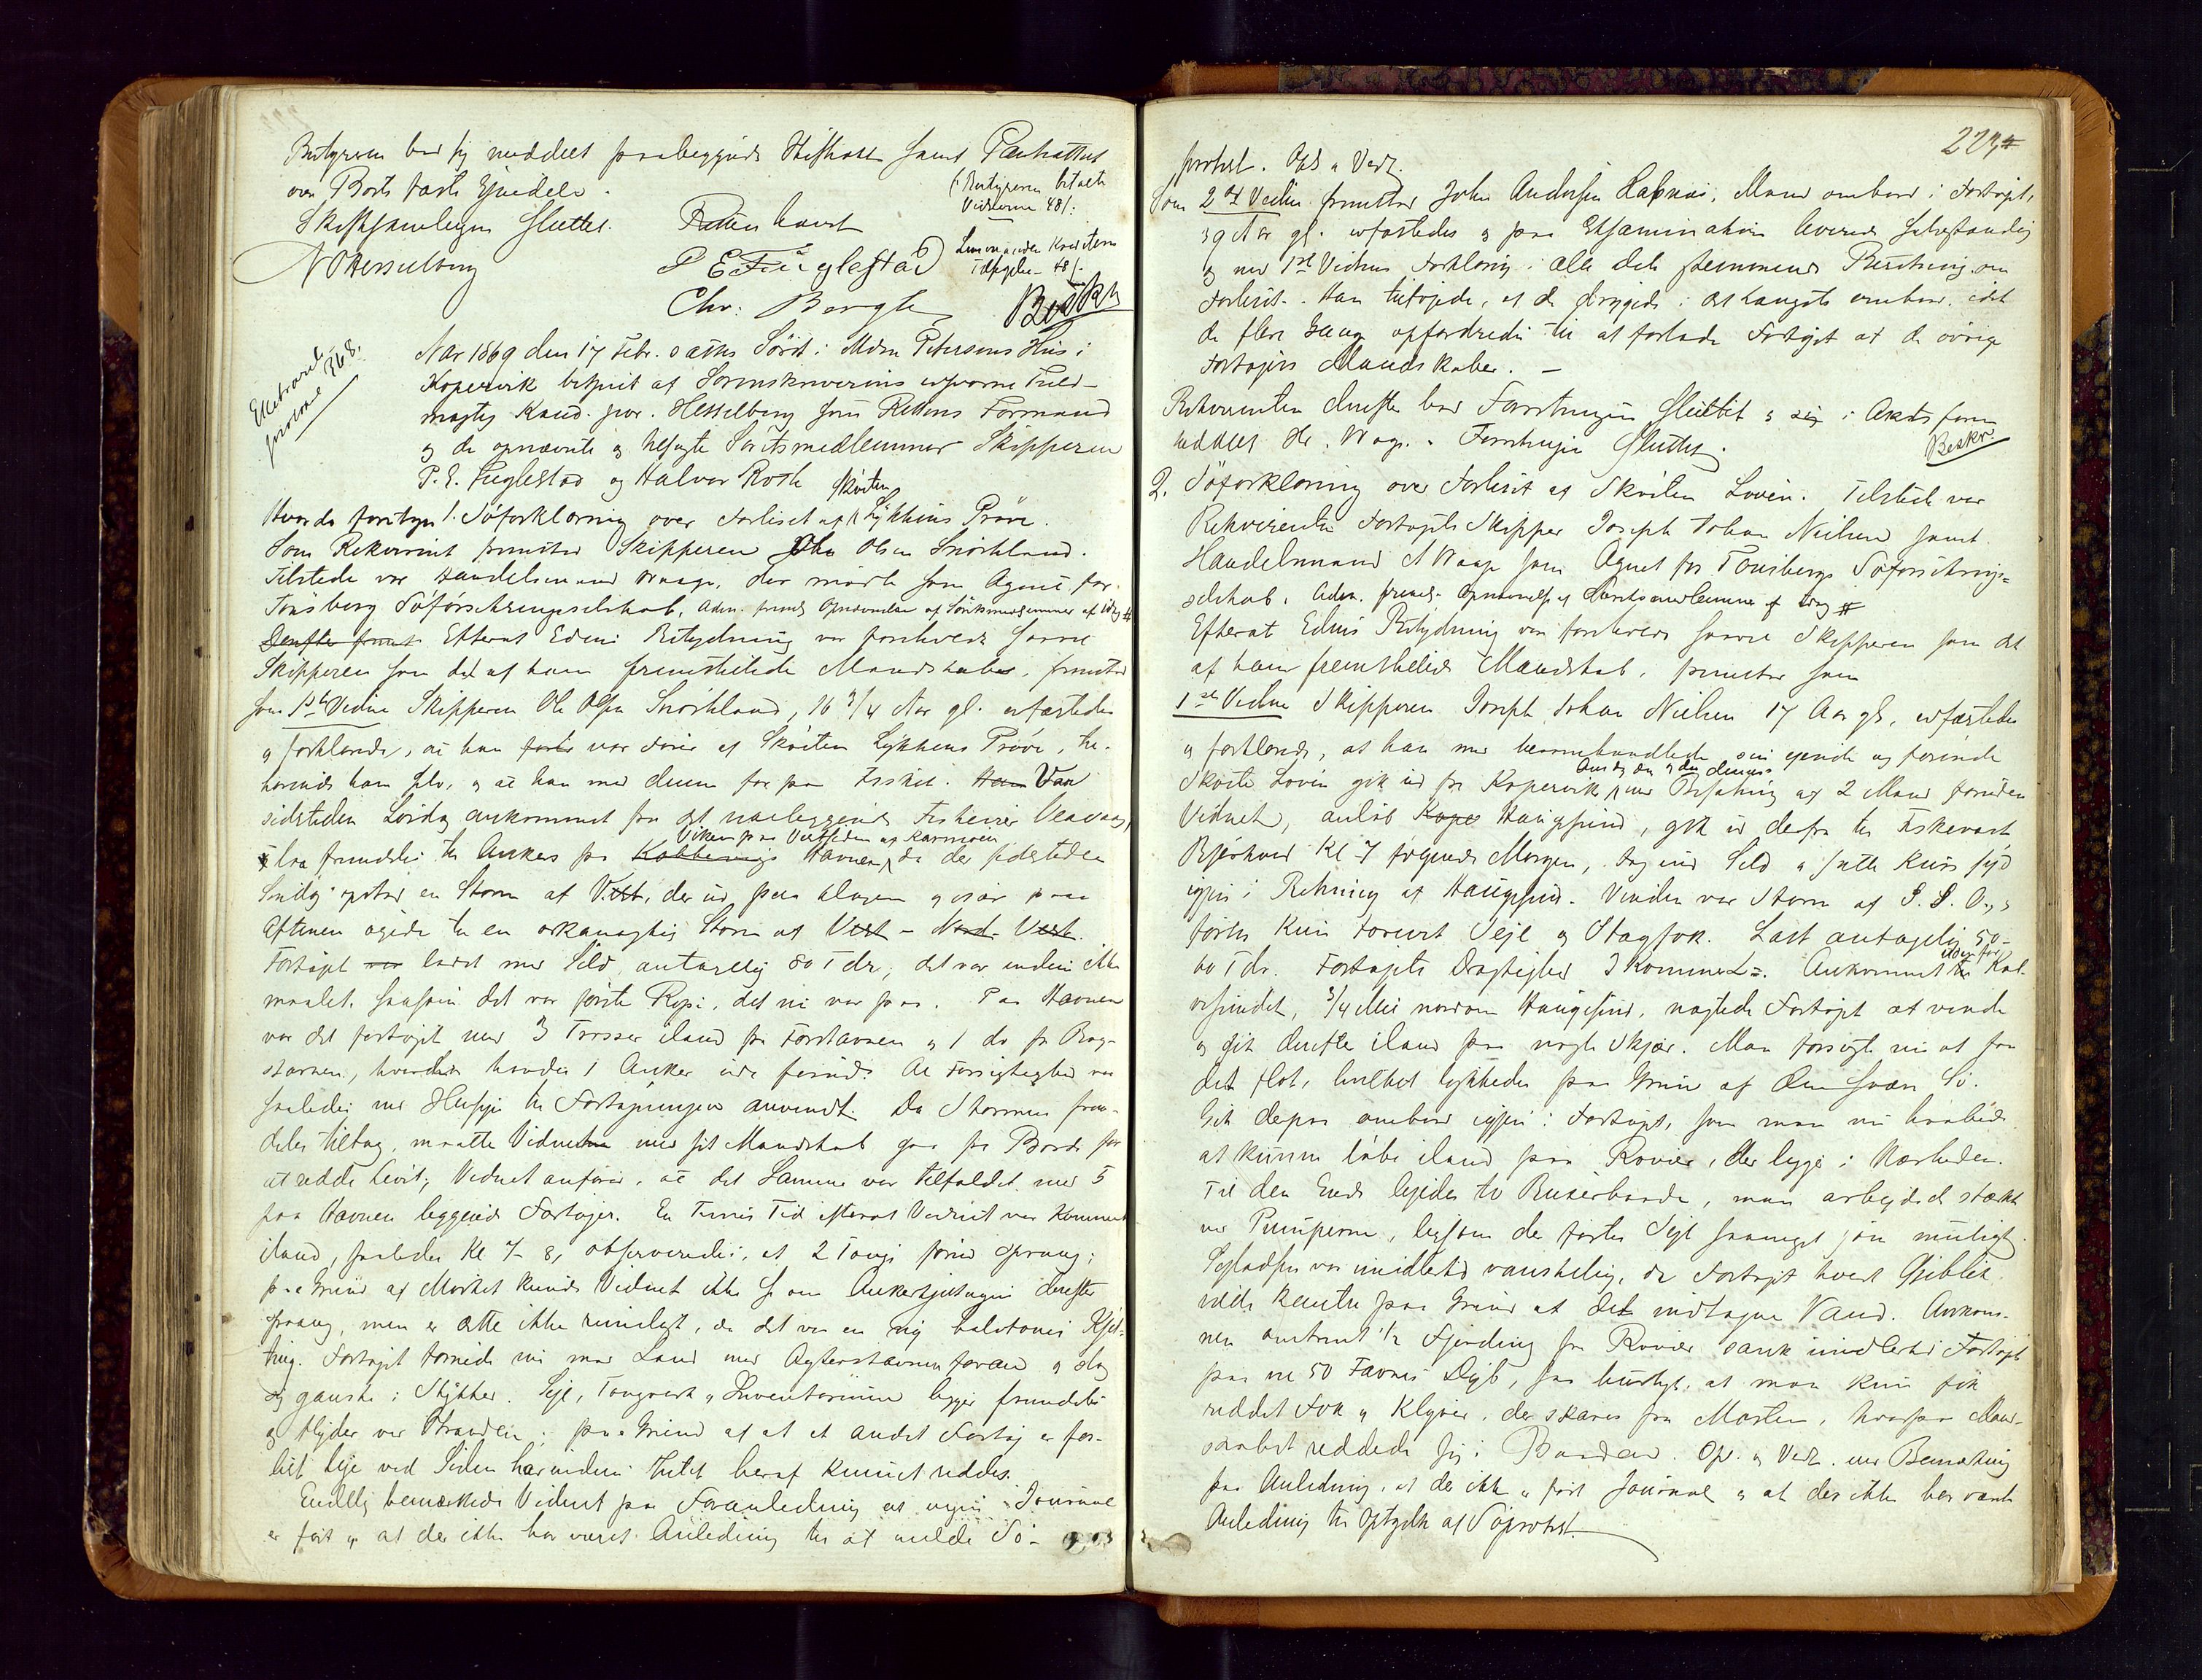 Bestyreren bad sig meddelt foreliggende Skifteakt samt Pantattest
over Boets faste Ejendele.
(: Bestyreren betalte
Vidnerne 48 /:
Skiftesamlingen sluttet. Retten hævet
N Hesselberg
P E Fuglestad
Chr: Bergh
Beskr
Extraret
No 368.
Aar 1869 den 17 Febr. sattes Söret i Mdm Petersens Hus i
Kopervik betjent af Sorenskriverens edsvorne Fuld-
mægtig Kand. jur. Hesselberg som Rettens Formand
og de opnævnte og Sörets medlemmer Skipperne
P. E. Fuglestad og Halvor Roth
Hvorda foretoges 1. Söforklaring over Forliset af Skøiten Lykkens Pröve.
Som Rekvirent fremstod Skipperen Ole Olsen Snörteland.
Tilstede var Handelsmand Waage, der mödte som Agent for
Tönsberg Söforsikringsselskab. Adm. fremla Opnævnelse af Söretsmedlemmer af idag #
Efterat Edens Betydning var foreholdt saavel
Skipperen som det af ham fremstillede Mandskab, fremstod
som 1ste Vidne Skipperen Ole Olsen Snörteland, 16 3/4 Aar gl. edfæstedes
og forklarede, at han var Förer af Skøiten Lykkens Pröve, til-
hørende ham selv, og at han med denne for paa Fisket. Var
sidstleden Lördag ankommet fra det nærliggende Fiskevær Veavaag,
laa fremdeles til Ankers paa Havnen, Viken paa Vestsiden af Karmöen da der sidstleden
Söndag opstod en Storm af Vest, der ud paa Dagen og især paa
Aftenen øgede til en orkanagtig Storm af Vest - Nord - Vest.
Fartöjet ladet med Sild antagelig 80 Tdr, det var endnu ikke
maalet, saasom det var förste Rejse, det nu var paa. Paa Havnen
var det fortöjet med 3 Trosser iland fra Forstavnen og 1 do fra Bag-
stavnen, hvorhos havdes 1 Anker ude forud. Al Forsigtighed var
saaledes med Hensyn til Fortöjningen anvendt. Da Stormen frem-
deles tiltog, maatte Vidnet med sit Mandskab gaa fra Borde for
at redde Livet; Vidnet anförer, at det Samme var Tilfældet med 5
paa Havnen liggende Fartöjer. En Times Tid efterat Vidnet var kommet
iland, saaledes Kl 7-8, observeredes, at 2 Touge forud sprang;
paa Grund af Mörket kunde Vidnet ikke se om Ankerkjettingen derefter
sprang, men er dette ikke rimeligt, da det var en ny Kjet-
ting. Fartöjet tornede nu mod Land med Agterstavnen foran og slog
sig ganske i Stykker. Sejl, Tougværk og Inventarium ligger fremdeles
og flyder ved Stranden; paa Grund af at et andet Fartöj er for-
list lige ved Siden har endnu Intet heraf kunnet reddes.
Endelig bemærkede Vidnet paa Foranledning at ingen Journal
er fört og at der ikke har været Anledning til at melde Sö-
223
protest. Opl. og Vedt.
Som 2det Vidne fremstod John Andersen Hapnæs, Mand ombord i Fartöjet,
39 Aar gl. edfæstedes og paa Examination leverede selvstændig
og med 1ste Vidnes Forklaring i alle dele stemmende Beretning om
Forliset. Han tilföjede, at de drøjede i det Længste ombord, idet
de flere Gange opfordredes til at forlade Fartöjet af de övrige
Fartöjers Mandskaber. -
Rekvirenten derefter bad Forretningen sluttet og i Aktsform
meddelt Hr. Waage. Forretningen sluttet.
Beskr.
2. Söforklaring over Forliset af Skøiten Loven. Tilstede var
Rekvirenten Fartöjets Skipper Joseph Johan Nielsen samt
Handelsmand A Waage som Agent for Tönsbergs Söforsikrings-
selskab. Adm. fremla Opnævnelse af Søretsmedlemmer af idag #
Efterat Edens Betydning var foreholdt saavel Skipperen som det
af ham fremstillede Mandskab, fremstod som
1ste Vidne Skipperen Joseph Johan Nielsen 17 Aar gl, edfæstedes
og forklarede, at han med benævnte sin ejende og förende
Skøite Loven gik ud fra Kopervik med Besætning af 2 Mand foruden
Vidnet, anløb Haugesund, gik ud derfra til Fiskevær
Kl 7 fölgende Morgen, tog ind Sild og satte Kurs syd
igjen i Retning af Haugesund. Vinden var Storm af S. S. O., og
förtes kun Forrest Sejl og Stagfok. Last antagelig 50-
60 Tdr. Fartöjets Drægtighed 3 Kommerc L. Ankommet udenfor Kal-
vesundet, 3/4 Mil nordom Haugesund, nægtede Fartöjet at vende
og gik derefter iland paa nogle Skjær. Man forsögte nu at faa
det flot, hvilket lykkedes paa Grund af den svære Sö.
Gik derpaa ombord igjen i Fartöjet, som man nu haabede
at kunne löbe iland paa Rovær, der ligger i Nærheden.
Til den Ende lejedes to Buxerbaade, man arbejdede stærkt
ved Pumperne, ligesom der förtes Sejl saameget som muligt.
Sejladsen var imidlertid vanskelig, da Fartöjet hvert Øjeblik
vilde kæntre paa Grund af det indtagne Vand. Ankom-
men omtrent 1/2 Fjerding fra Rovær sank imidlertid Fartöjet
paa ca 50 Favnes Dyb, saa hurtigt, at man kun fik
reddet Fok og Klyver, der skares fra Masten, hvorpaa Mand-
skabet reddede sig i Baaden. Opl. og Vedt. med Bemærkning
paa Anledning, at der ikke er fört Journal og at der ikke har været
Anledning til Optagelse af Söprotest.